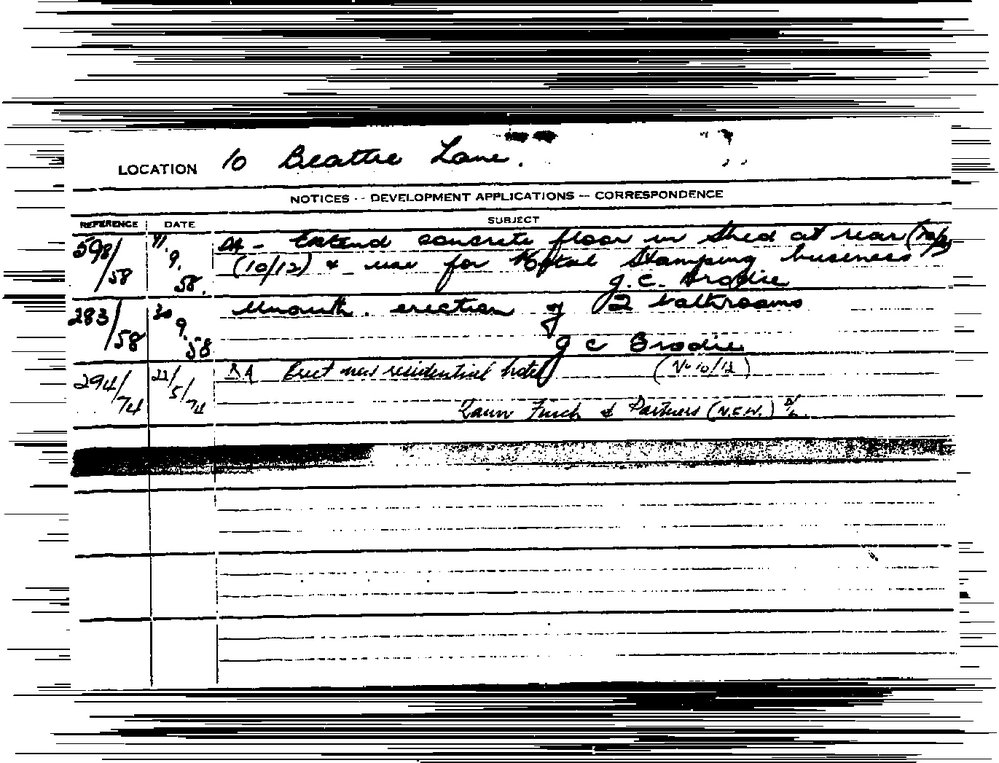 LOCATION 10 Beattie Lane.
NOTICES -- DEVELOPMENT APPLICATIONS -- CORRESPONDENCE
REFERENCE DATE SUBJECT
598/58 11.9.58. DA - Extend concrete floor in shed at rear
(10/12) & use for Metal Stamping business
J.C. Brodie
283/58 30.9.58 Unauth. erection of 2 bathrooms
J C Brodie
294/74 22/5/74 DA Erect new residential hotel (No 10/12)
Finch & Partners (N.S.W.) P/L.